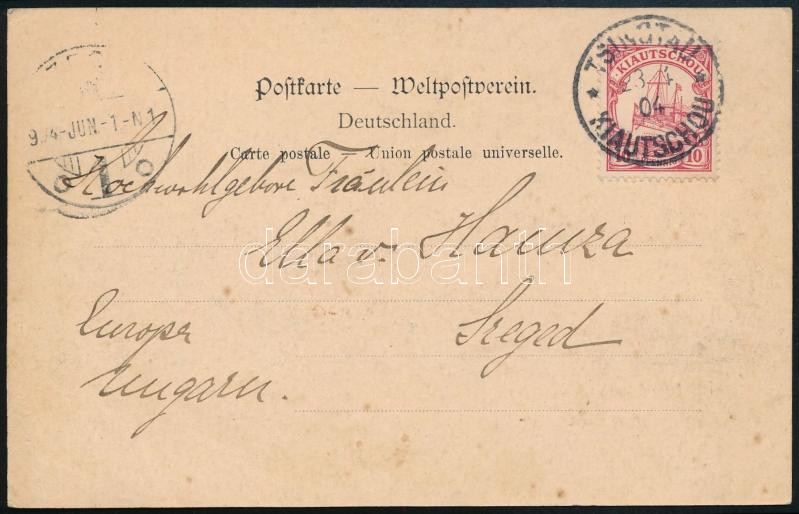 Postkarte — Weltpostverein.
Deutschland.
Carte postale — Union postale universelle.
TSINGTAU
23 4
04
KIAUTSCHOU
KIAUTSCHOU
10
904-JUN.-1-N1
Hochwohlgebore Fräulein
Ella v. Hamza
Szeged
Europa
Ungarn.
darabanth